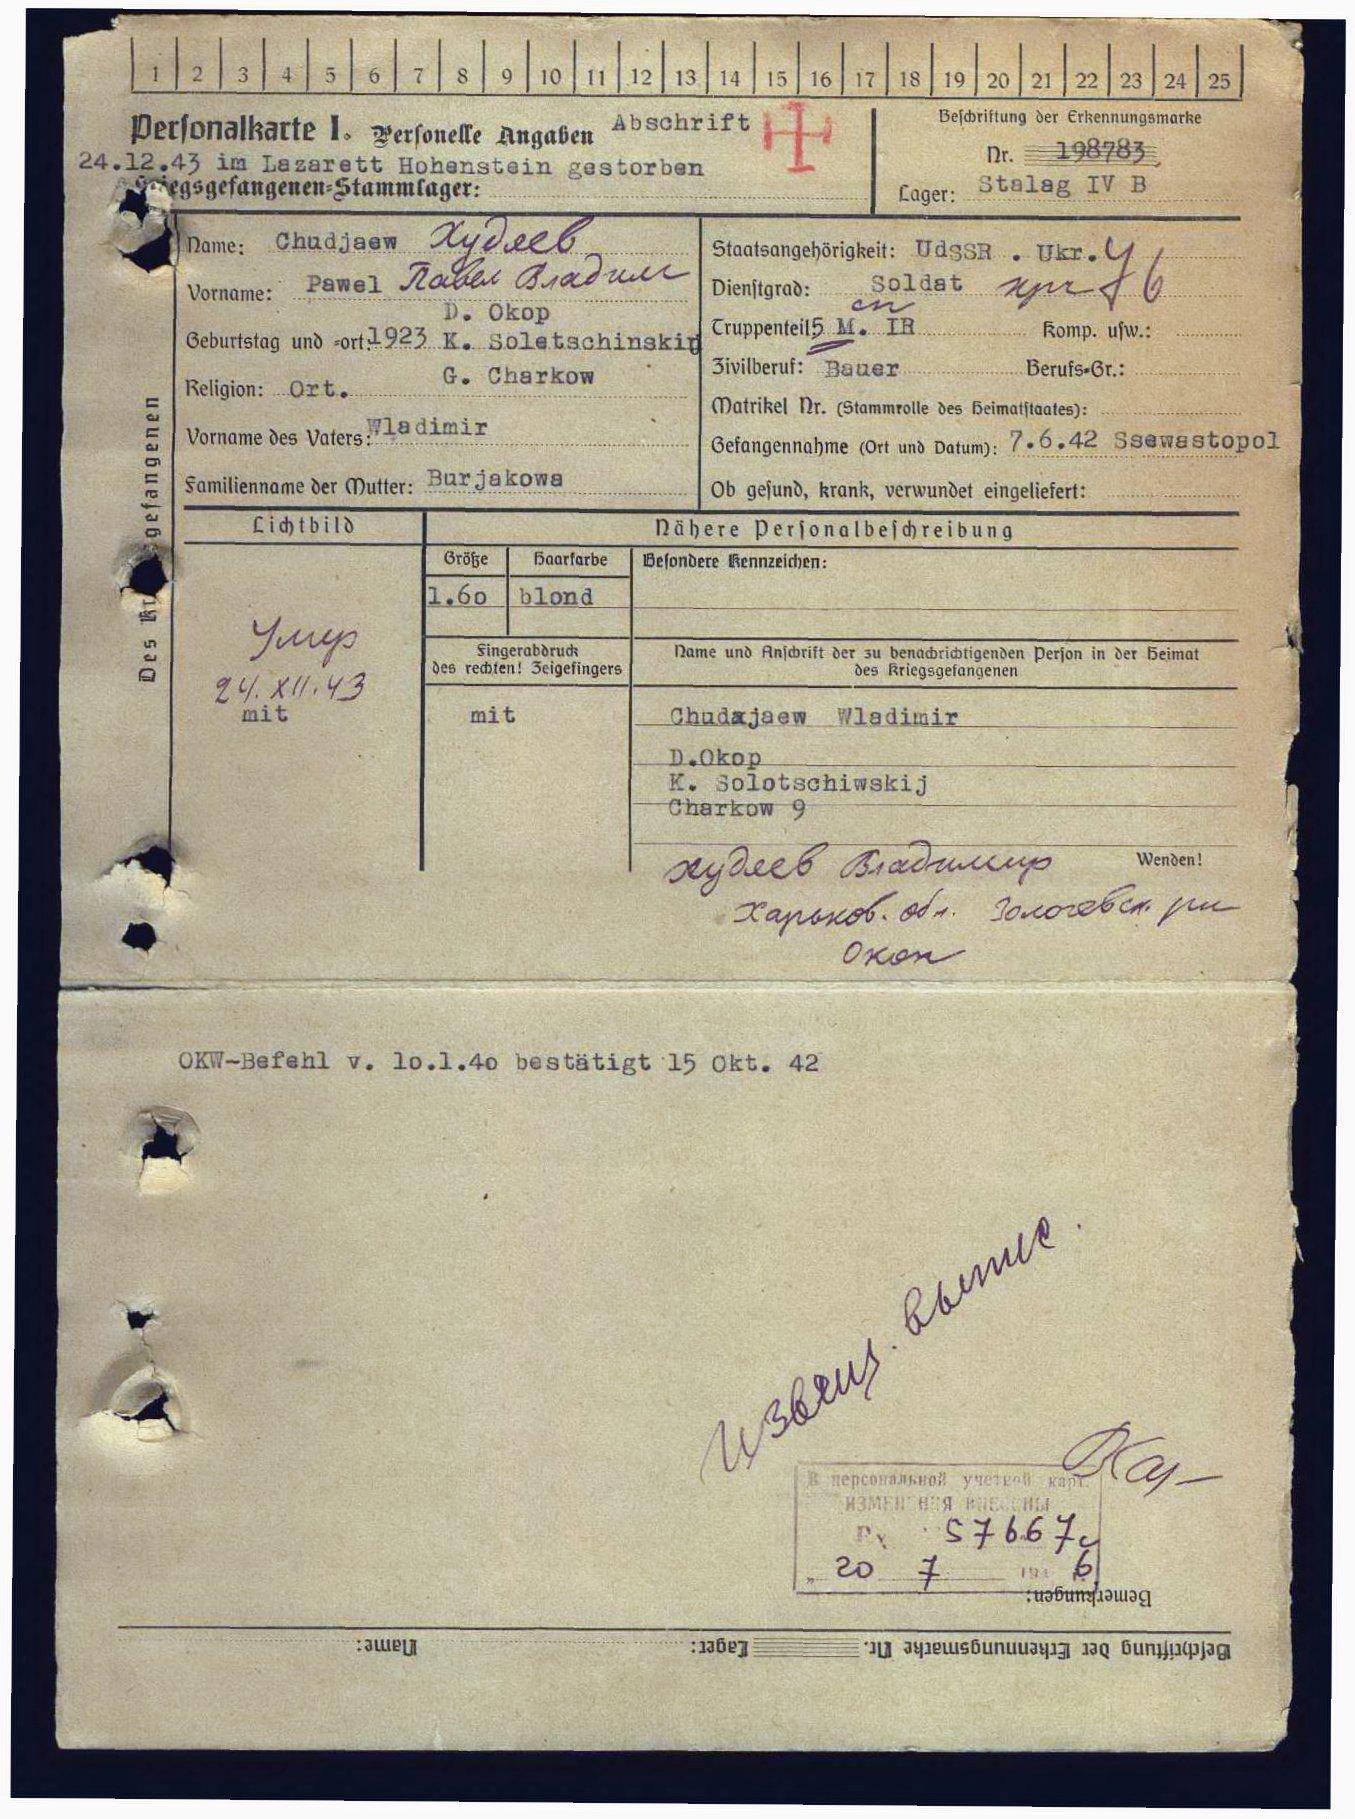 1 2 3 4 5 6 7 8 9 10 11 12 13 14 15 16 17 18 19 20 21 22 23 24 25
Personalkarte I. Personelle Angaben Abschrift
24.12.43 im Lazarett Hohenstein gestorben
Kriegsgefangenen-Stammlager:
Beschriftung der Erkennungsmarke
Nr. 198783
Lager: Stalag IV B
Des Kriegsgefangenen
Name: Chudjaew Худяев
Vorname: Pawel Павел Владим
D. Okop
Geburtstag und -ort: 1923 K. Soletschinskij
G. Charkow
Religion: Ort.
Vorname des Vaters: Wladimir
Familienname der Mutter: Burjakowa
Staatsangehörigkeit: UdSSR . Ukr. У
Dienstgrad: Soldat
Truppenteil: 5 M. IR Komp. usw.:
Zivilberuf: Bauer Berufs-Gr.:
Matrikel Nr. (Stammrolle des Heimatstaates):
Gefangennahme (Ort und Datum): 7.6.42 Ssewastopol
Ob gesund, krank, verwundet eingeliefert:
Lichtbild
Nähere Personalbeschreibung
Größe Haarfarbe Besondere Kennzeichen:
1.60 blond
Fingerabdruck
des rechten! Zeigefingers
Name und Anschrift der zu benachrichtigenden Person in der Heimat
des Kriegsgefangenen
Умер
24.XII.43
mit
mit
Chudxjaew Wladimir
D.Okop
K. Solotschiwskij
Charkow 9
Wenden!
Худяев Владимир
Харьков. обл. Золочевск. рн
Окоп
OKW-Befehl v. 10.1.40 bestätigt 15 Okt. 42
Извещ. выпис.
В персональной учетной карт.
ИЗМЕНЕНИЯ ВНЕСЕНЫ
57667с
„ 20 7 194 6
Bemerkungen:
Beschriftung der Erkennungsmarke Nr. Lager: Name: